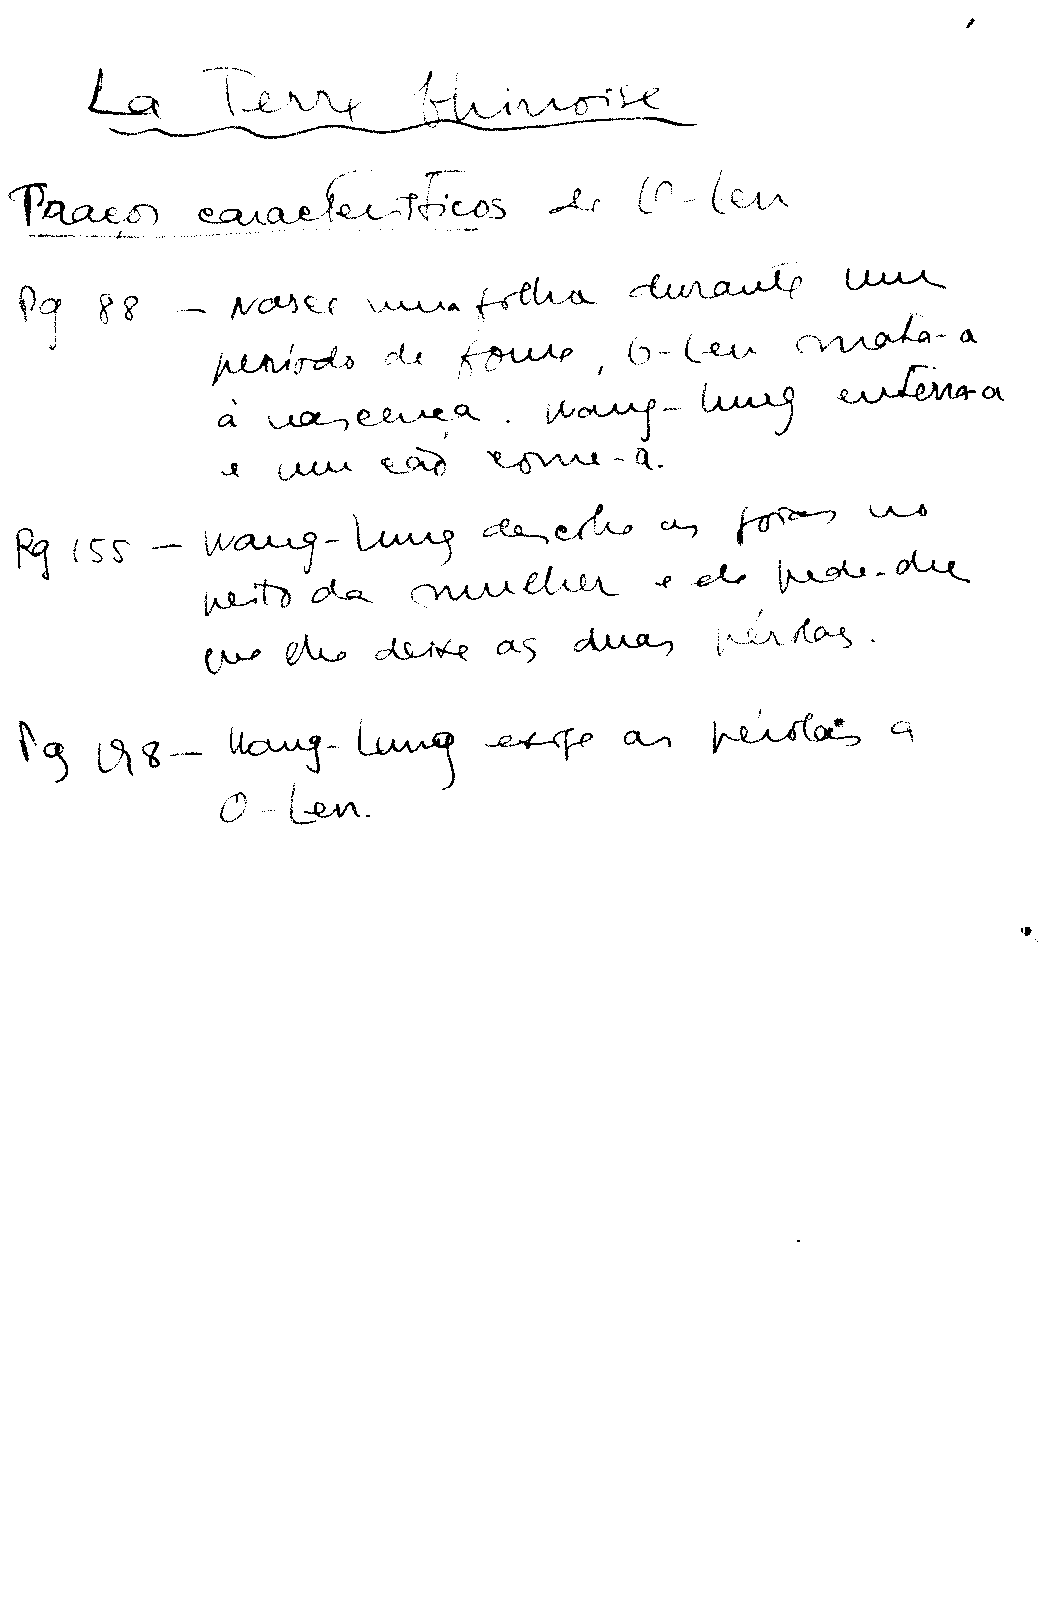 La Terre Chinoise
Traços característicos de O-Len
Pg 88 - Nasce uma filha durante um
período de fome, O-Len mata-a
à nascença. Wang-Lung enterra-a
e um cão come-a.
Pg 155 - Wang-Lung descobre as joias no
peito da mulher e ela pede-lhe
que lhe deixe as duas pérolas.
Pg 198 - Wang-Lung exige as pérolas a
O-Len.